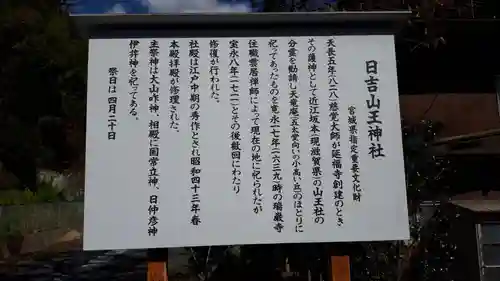 日吉山王神社
宮城県指定重要文化財
天長五年(八二八)慈覚大師が延福寺創建のとき
その護神として近江坂本(現滋賀県)の山王社の
分霊を勧請し天竜庵(五大堂向いの小高い丘)のほとりに
祀ってあったものを寛永十七年(一六三九)時の瑞巌寺
住職雲居禅師によって現在の地に祀られたが
宝永八年(一七一一)とその後数回にわたり
修復が行われた。
社殿は江戸中期の秀作とされ昭和四十三年春
本殿拝殿が修理された。
主祭神は大山咋神、相殿に国常立神、日仲彦神
伊弉神を祀ってある。
祭日は四月二十日